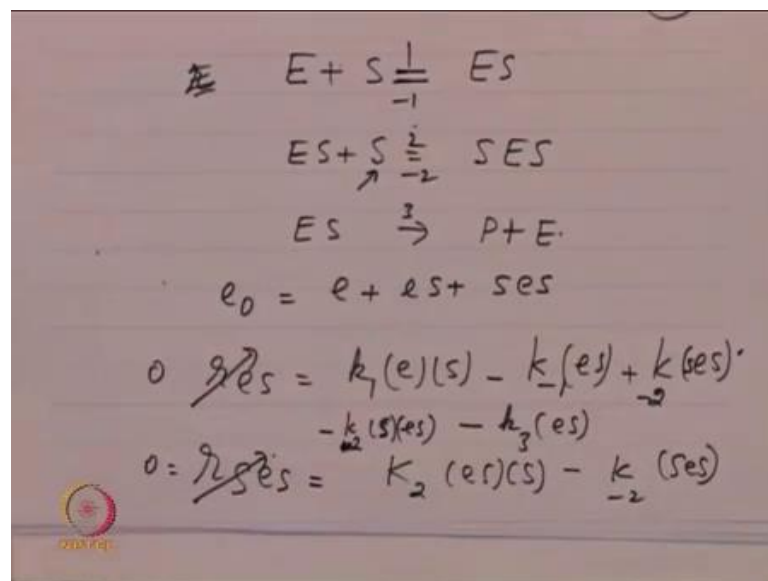 E + S 1 ⇌ -1 ES
ES + S 2 ⇌ -2 SES
ES 3 → P + E.
e0 = e + es + ses
0 res = k1(e)(s) - k-1(es) + k-2(ses)
- k2(s)(es) - k3(es)
0 = rses = K2 (es)(s) - k-2 (ses)
NPTEL